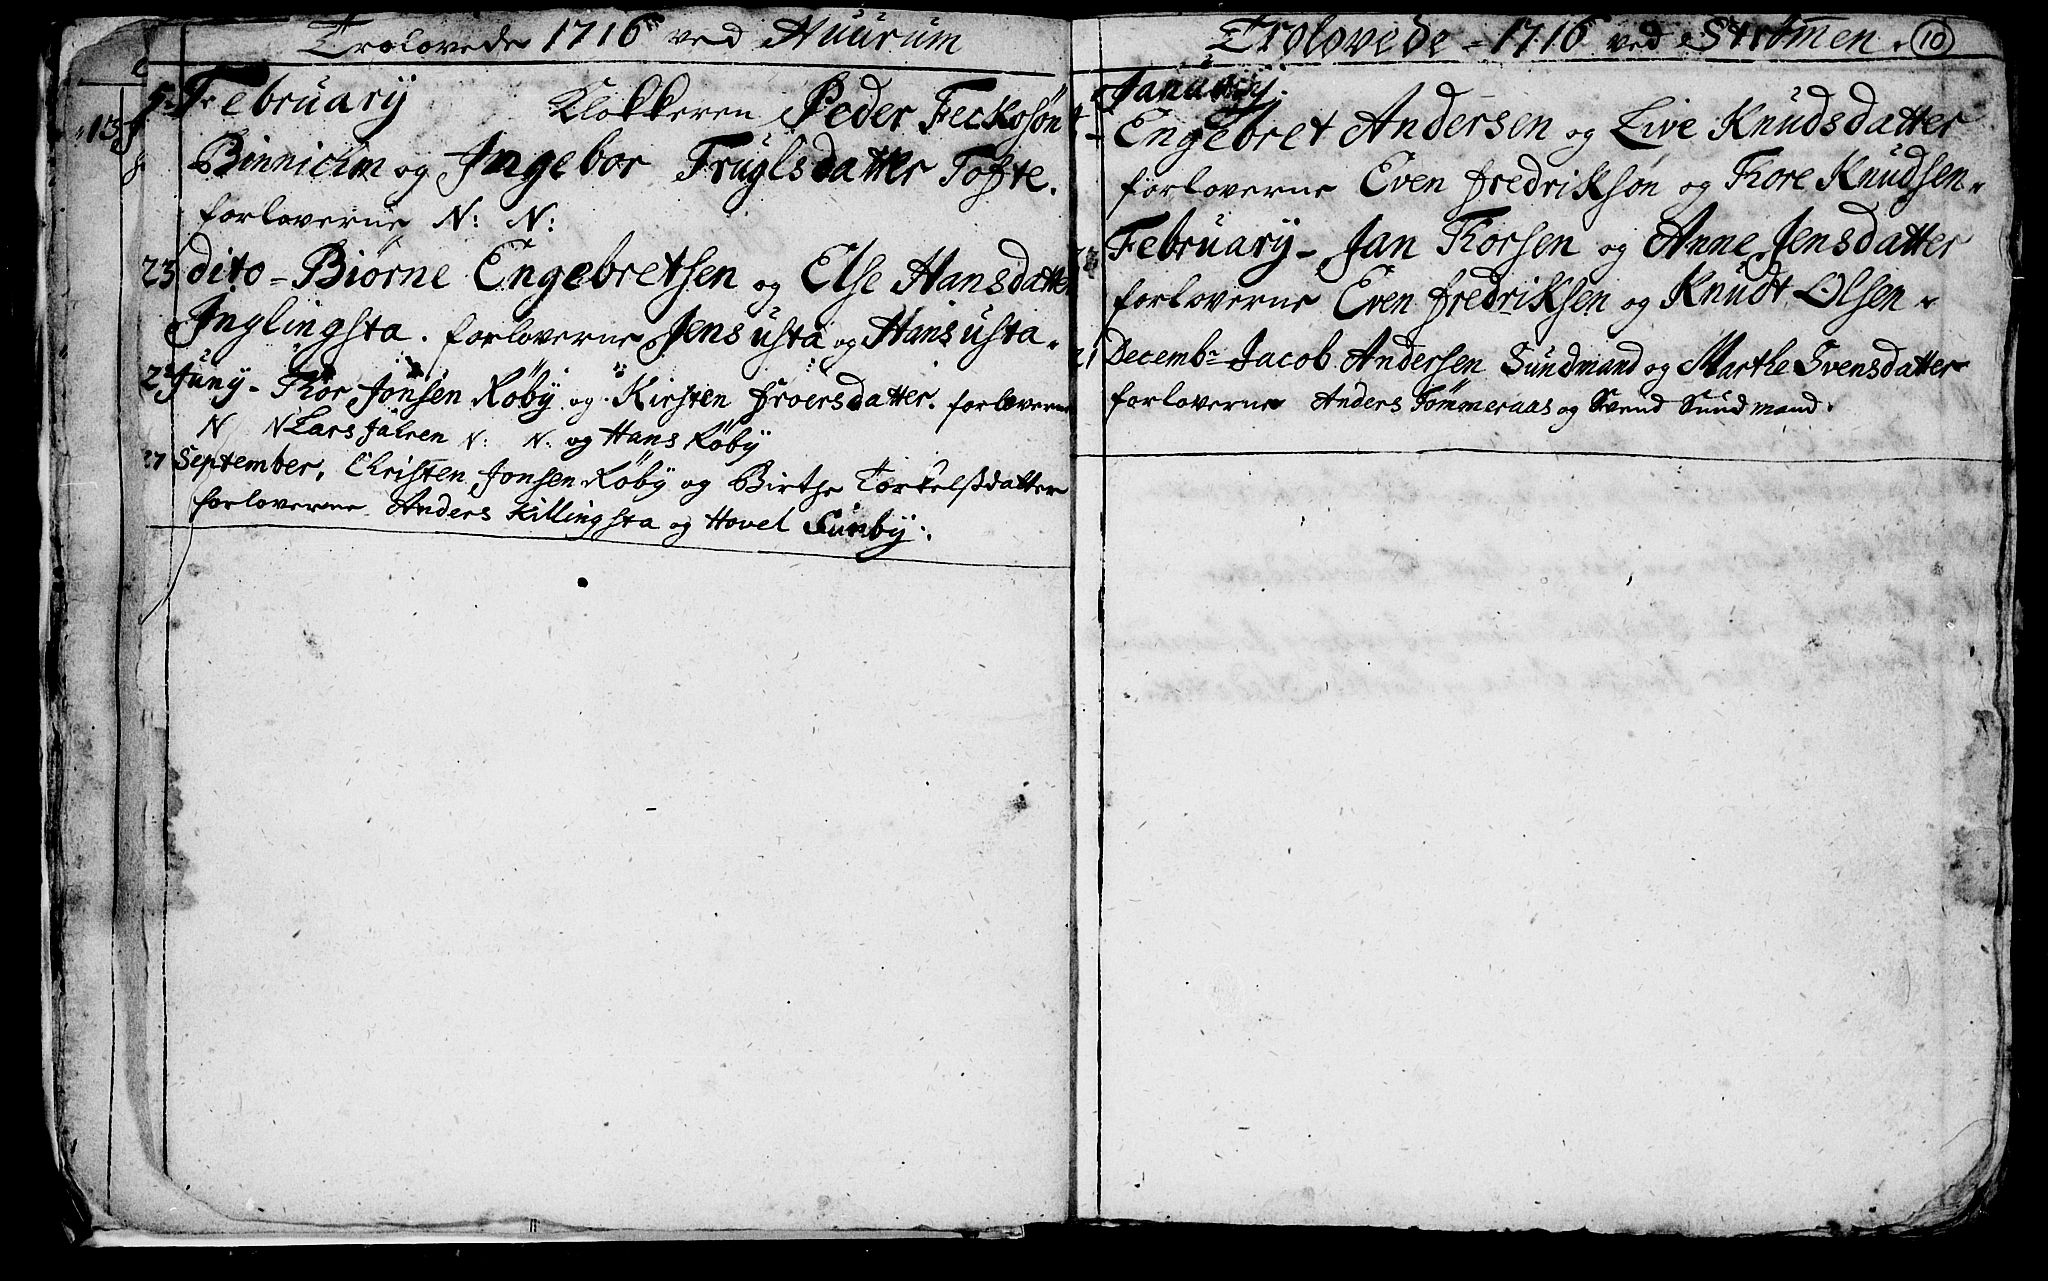 Trolovede 1716 ved Auurum
5. Februarij Klokkeren Peder Feckosøn
Binnichm og Ingebor Truglsdatter Tofte.
forloverne N: N:
23 dito = Biørne Engebretsen og Else Hansdatter
Inglingsta. forloverne Jens usta og Hans usta.
2 Junij - Thor Jonsen Røby og Kirsten Froersdatter. forloverne
N N Lars Jalsen N: N: og Hans Røby
27 September, Christen Jonsen Røby og Birthe Torkelsdatter
forloverne Anders Killingsta og Hovel Sunby.
Trolovede = 1716 ved Strømen. 10
Januarij.
Engebret Andersen og Live Knudsdatter
forloverne Even fredriksøn og Thore Knudsen.
Februarij - Jan Thorsen og Anne Jensdatter
forloverne Even fredriksen og Knudt Olsen.
21 Decembr Jacob Andersen Sundmand og Marthe Svensdatter
forloverne Anders Tømmeraas og Svend Sundmand.